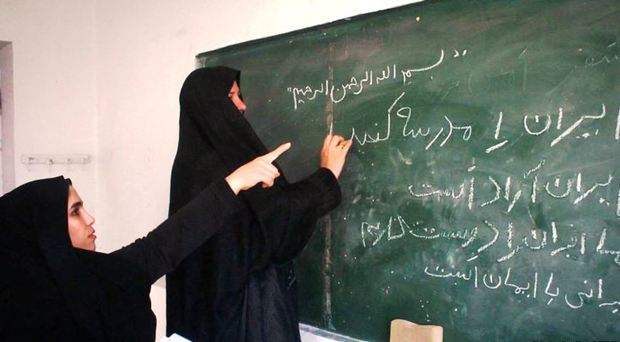 "بسم الله الرحمن الرحیم"
ایران را مدرسه کنید
ایران آزاد است
ما ایران را دوست داریم
یرانی با ایمان است